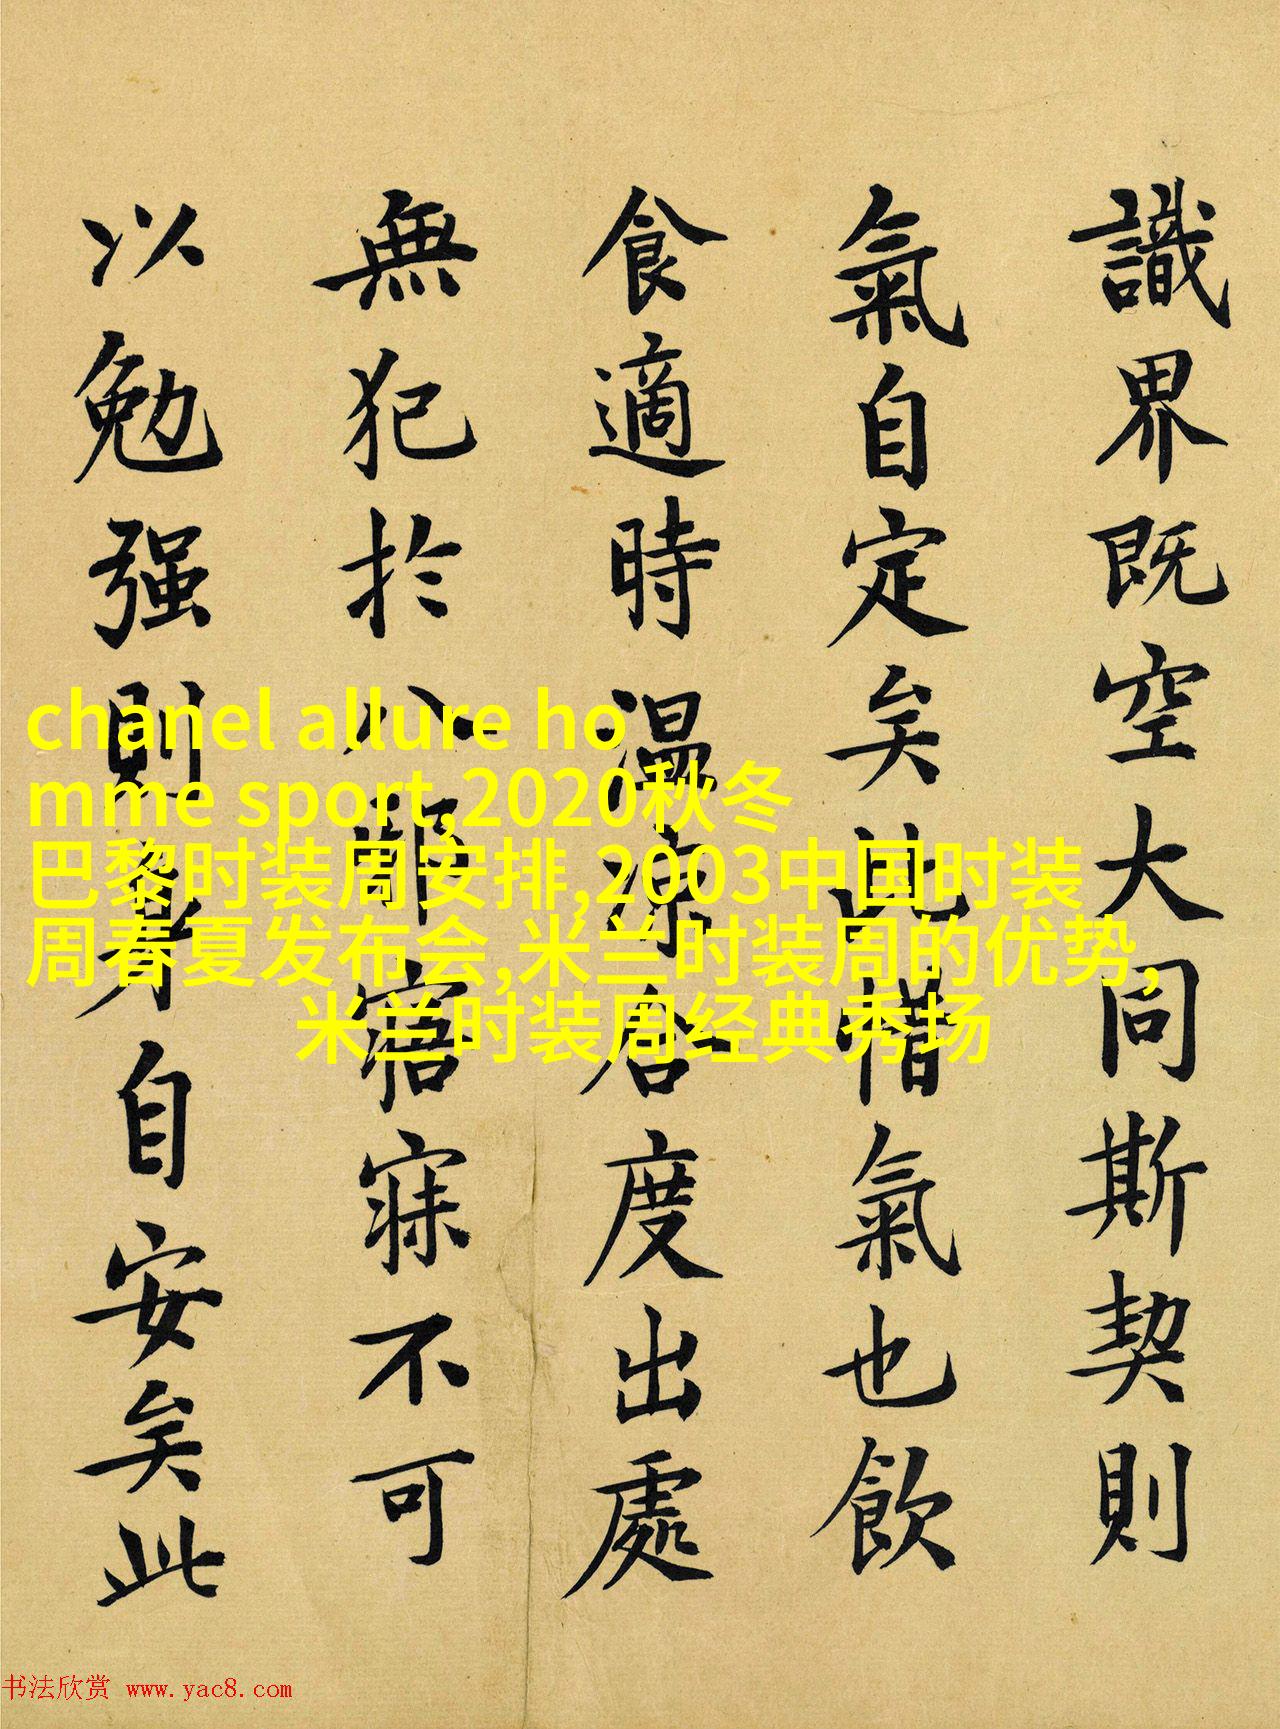 識界既空大同斯契則
氣自定矣此惜氣也飲
食適時温凉居度出處
無犯於八邪寤寐不可
以勉强則身自安矣此
chanel allure ho
mme sport,2020秋冬
巴黎时装周安排,2003中国时装
周春夏发布会,米兰时装周的优势,
米兰时装周经典秀场
书法欣赏 www.yac8.com